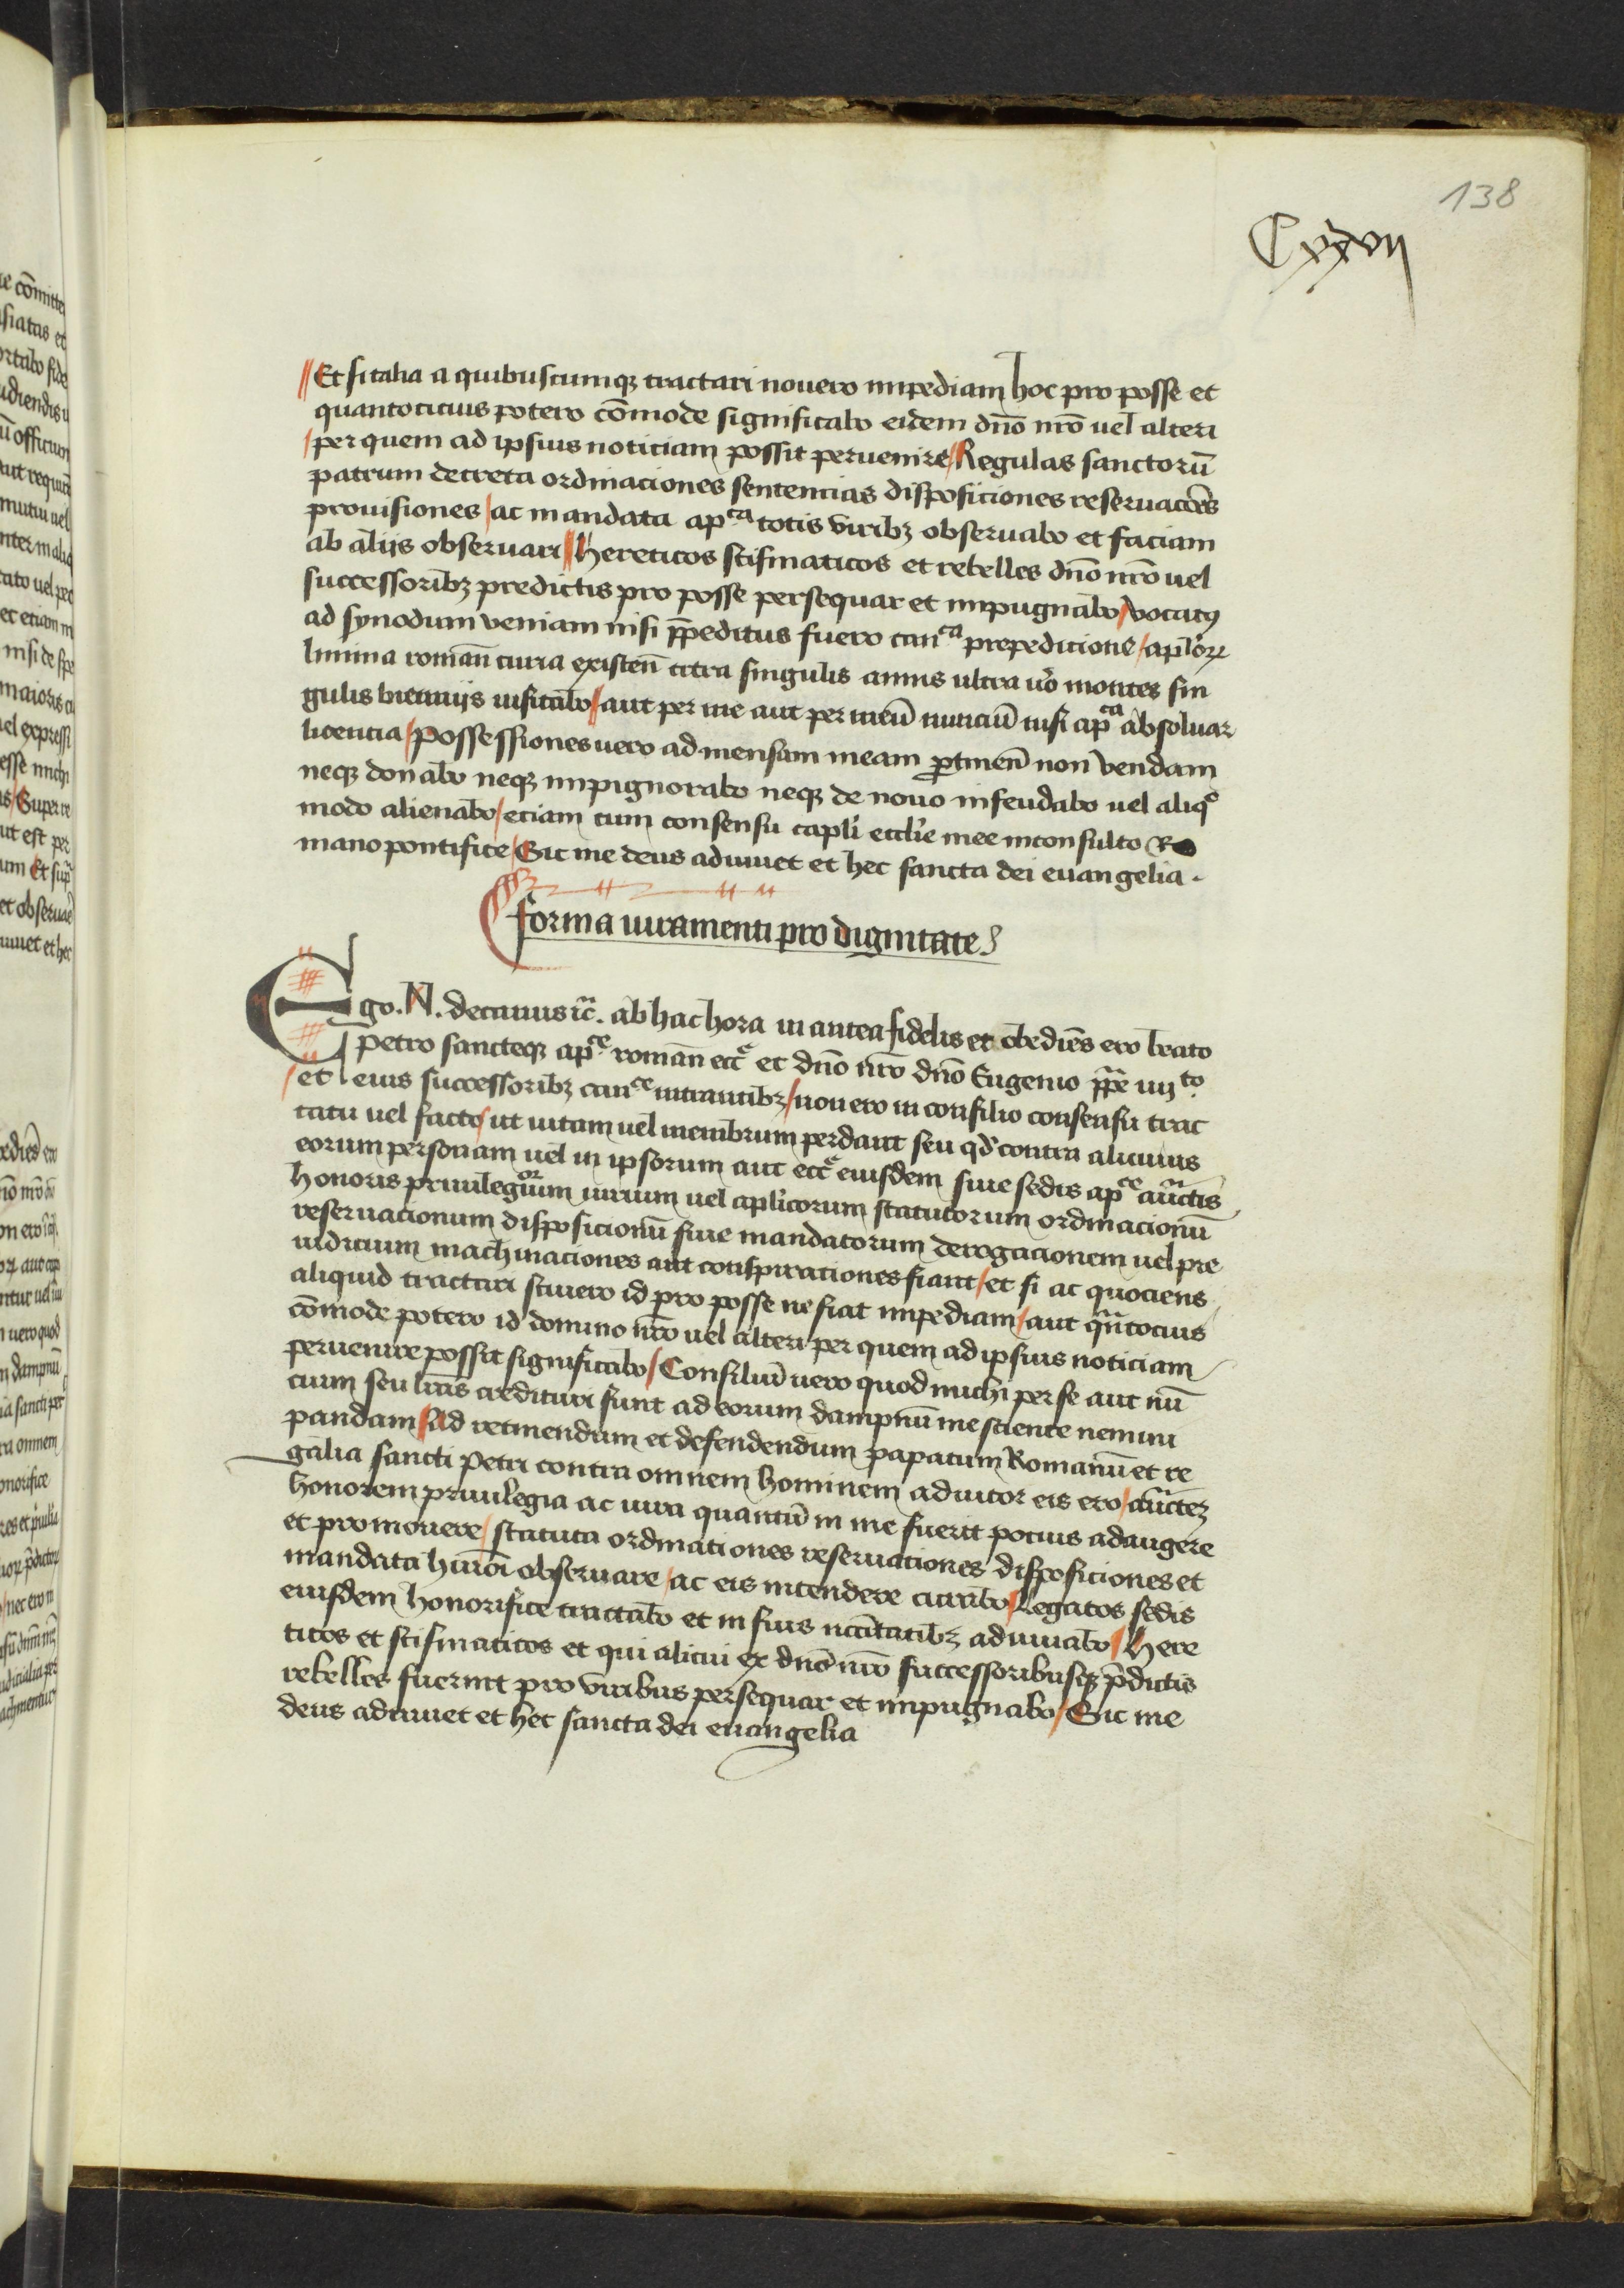 138
Cxxxvij
Et si talia a quibuscumqꝫ tractari nouero impediam hoc pro posse et
quantocicius potero cōmode significabo eidem dn̄o nr̄o uel alteri
per quem ad ipsius noticiam possit peruenire / Regulas sanctorū
patrum decreta ordinaciones sentencias disposiciones reseruacōes
prouisiones / ac mandata apᶜᵃ totis viribꝫ obseruabo et faciam
ab alijs obseruari // Hereticos scismaticos et rebelles dn̄o nr̄o uel
successoribꝫ predictis pro posse persequar et impugnabo / vocatꝰ
ad synodum veniam nisi p̄peditus fuero canᶜᵃ prepedicione / apl̄oꝝ
limina roman̄ curia existen̄ citra singulis annis ultra uº montes sin
gulis bienniis uisitabo // aut per me aut per meū nunciū nisi apᶜᵃ absoluar
licencia / Possessiones uero ad mensam meam ꝑtinen̄ non vendam
neqꝫ donabo neqꝫ impignorabo neqꝫ de nouo infeudabo uel aliqº
modo alienabo / eciam cum consensu capl̄i eccl̄ie mee inconsulto Ro
mano pontifice / Sic me deus adiuuet et hec sancta dei euangelia .
forma iuramenti pro dignitate
Ego . N . decanus ꝛc̄ . ab hac hora in antea fidelis et obediēs ero b̄eato
Petro sancteqꝫ apᶜᵉ roman̄ ecᶜᵉ et dn̄o nr̄o dn̄o Eugenio pp̄e iiijᵗᵒ .
et eius successoribꝫ canᶜᵉ intrantibꝫ / non ero in consilio consensu trac
tatu uel facto / ut uitam uel membrum perdant seu qd̄ contra alicuius
eorum personam uel in ipsorum aut ecᶜᵉ eiusdem siue sedis apᶜᵉ auctis
honoris priuilegiorum iurium uel apl̄icorum statutorum ordinacionū
reseruacionum disposicionū siue mandatorum derogacionem uel pre
iudicium machinaciones aut conspiraciones fiant / et si ac quociens
aliquid tractari sciuero id pro posse ne fiat impediam / aut qn̄tocius
cōmode potero id domino nr̄o uel alteri per quem ad ipsius noticiam
peruenire possit significabo / Consiliū uero quod michi per se aut nū
cium seu lr̄as credituri sunt ad eorum dampnū me sciente nemini
pandam / Ad retinendum et defendendum papatum Romanū et re
galia sancti Petri contra omnem hominem adiutor eis ero / auctez
honorem priuilegia ac iura quantū in me fuerit pocius adaugere
et promouere / statuta ordinationes reseruationes disposiciones et
mandata hmōi obseruare / ac eis intendere curabo / Legatos sedis
eiusdem honorifice tractabo et in suis nc̄citatibꝫ adiuuabo / Here
ticos et scismaticos et qui alicui ex dn̄o nr̄o successoribusqꝫ p̄dictis
rebelles fuerint pro viribus persequar et impugnabo / Sic me
deus adiuuet et hec sancta dei euangelia